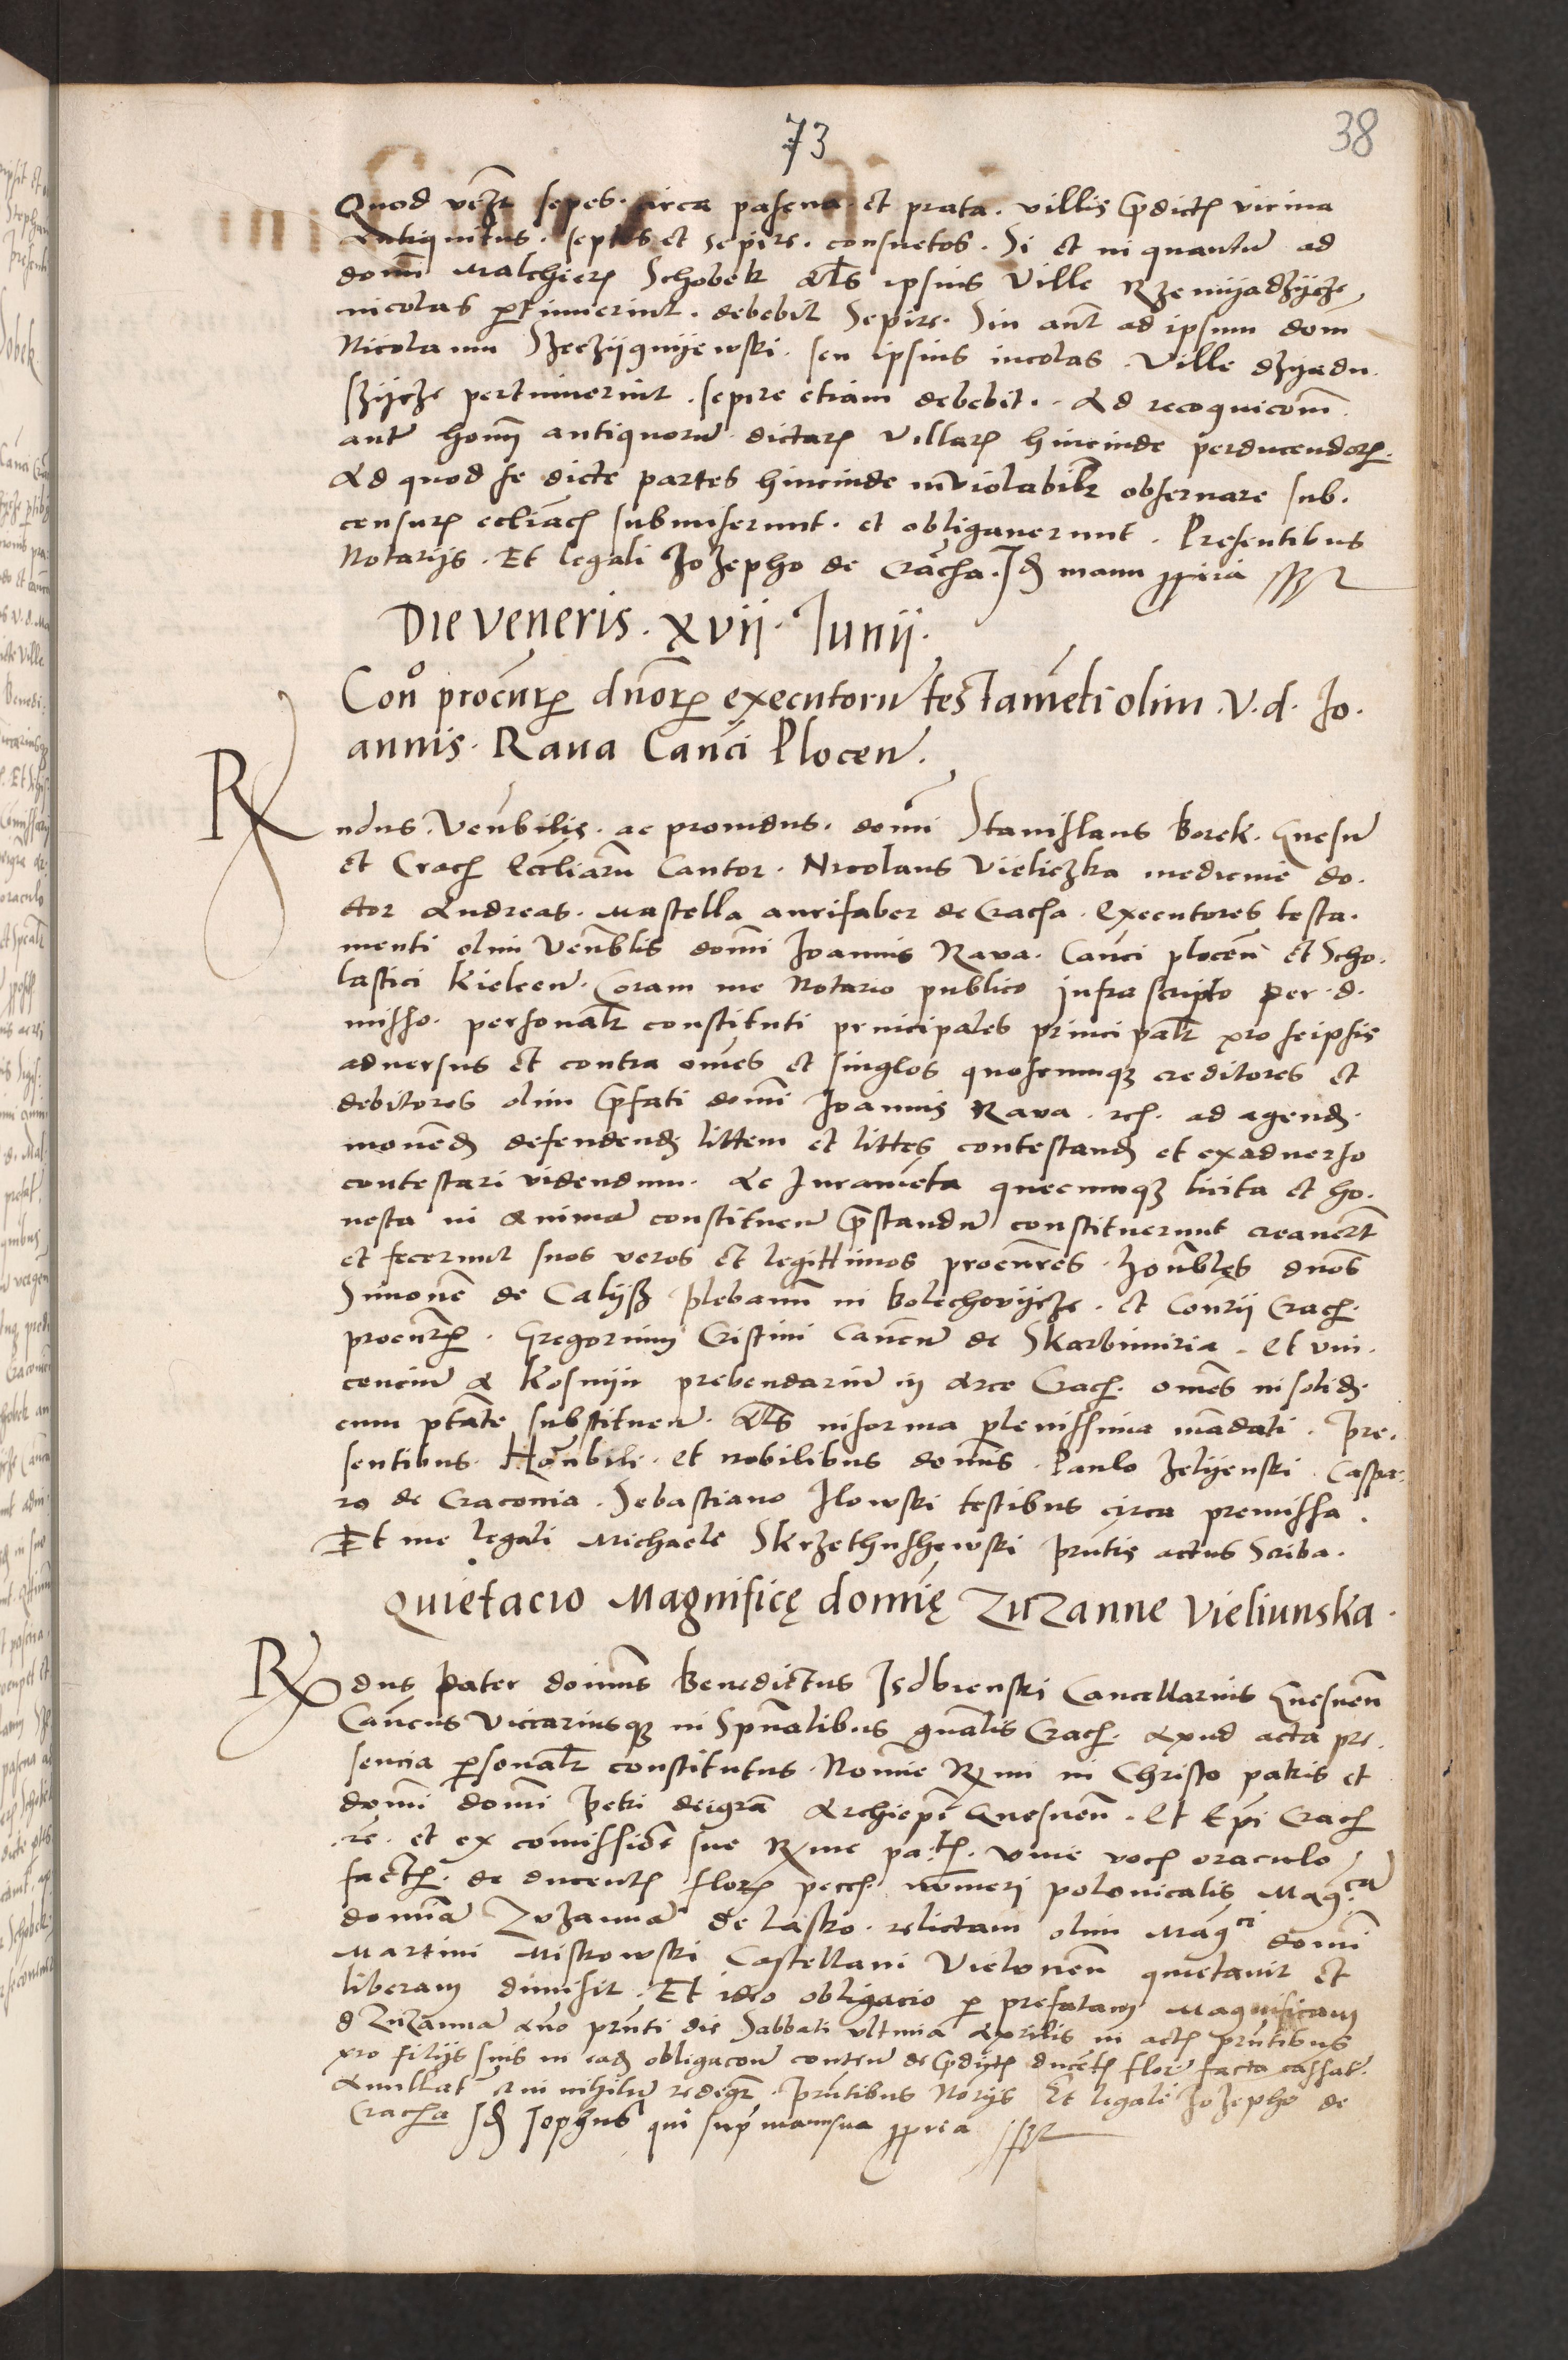 73
38
Quod vero sepes circa pascua et prata villis predictis vicina
Antiquitus septas et sepire consuetos. Si et in quantum ad
domi Malchierem Schobek als ipsius Ville Rzemyadzycze
incolas pertinuerint. debebit Sepire. Sin aut ad ipsum dom
Nicolaum Szeczygnyewski. seu ipsius incolas. Ville dzyadu.
szycze pertinuerint. sepire etiam debebit. Ad recognicom
autem homi antiquorum dictarum Villarum hincinde perducendorum.
Ad quod se dicte partes hincinde inviolabilr observare sub.
censuris eccliacis submiserunt. et obligaverunt. Presentibus
Notarijs. Et legali Jozepho de Cracha. Id manu ppria
Die Veneris. xvii. Junii.
Con procur dnor executoru testameti olim. V. d. Jo.
annis. Rava Canci Plocen.
R
ndus. Venbilis. ac providus. domi Stanislaus Borek. Gnesn
et Crac Eccliarum Cantor. Nicolaus Vieliczka medicine do.
ctor Andreas. Mastella aurifaber de Cracha. Executores testa.
menti olim Venblis domi Joannis Rava. Canci plocen et Scho.
lastici Kielcen. Coram me Notario publico infra scripto per. d.
misso. personalr constituti principales principalr pro seipsis
adversus et contra omes et singlos quoscumq creditores et
debitores olim pfati domi Joannis Rava. rc. ad agend.
movend defendend littem et littes contestand et exadverso
contestari videndum. Ac Jurameta quecumq licita et ho.
nesta in animam constituen prestandum constituerunt creavert
et fecerunt suos veros et legittimos procurres. honbles dnos
Simonem de Calyss plebanum in Bolechovijcze. et Consij Crac.
procurrem. Gregorium Cristini Canen de Skarbimiria. et vin.
cencium a Kosmijn prebendarium in Arce Crac. omes insolid.
cum ptate substituen. Als in forma plenissima mandati. Pre.
sentibus. Honbili. et nobilibus domis. Paulo Zelijenski. Caspa.
ro de Craconia. Sebastiano Jlowski testibus circa premissa.
Et me legali Michaele Skrzethushewski prntis actus Scriba.
Quietacio Magnificę domię Zuzanne Vieliunska.
R
dus Pater dominus Benedictus Isdbienski Cancellarius Gnesnen
Canicus Vicariusq in Spualibus gnalis Crac. Apud acta pre.
sencia personalr constitutus. Nomine Rmi in Christo patris et
domi domi Petri deigra Archiepi Gnesnen. Et Epi Crac
rc. et ex comissione sue Rme pa:tis. vive vocis oraculo
facte. de ducentis floris pecc. numeri polonicalis Mag:cam
domina Zuzanna de Lasko. relictam olim Mag:ci domi
Martini Miskowski Castellani Vielonen quietavit et
liberam dimisit. Et ideo obligacio p prefatam Magnificam
d Zuzanna Ano prnti die Sabbati ultima Aprilis in actis prntibus
pro filijs suis in eadem obligacon conten de pdictis ducetis flor facta cassat
Anullat et in nihilum redegr. Prntibus Norijs Et legali Jozepho de
Cracha Id Jophus qui sup manusua ppria